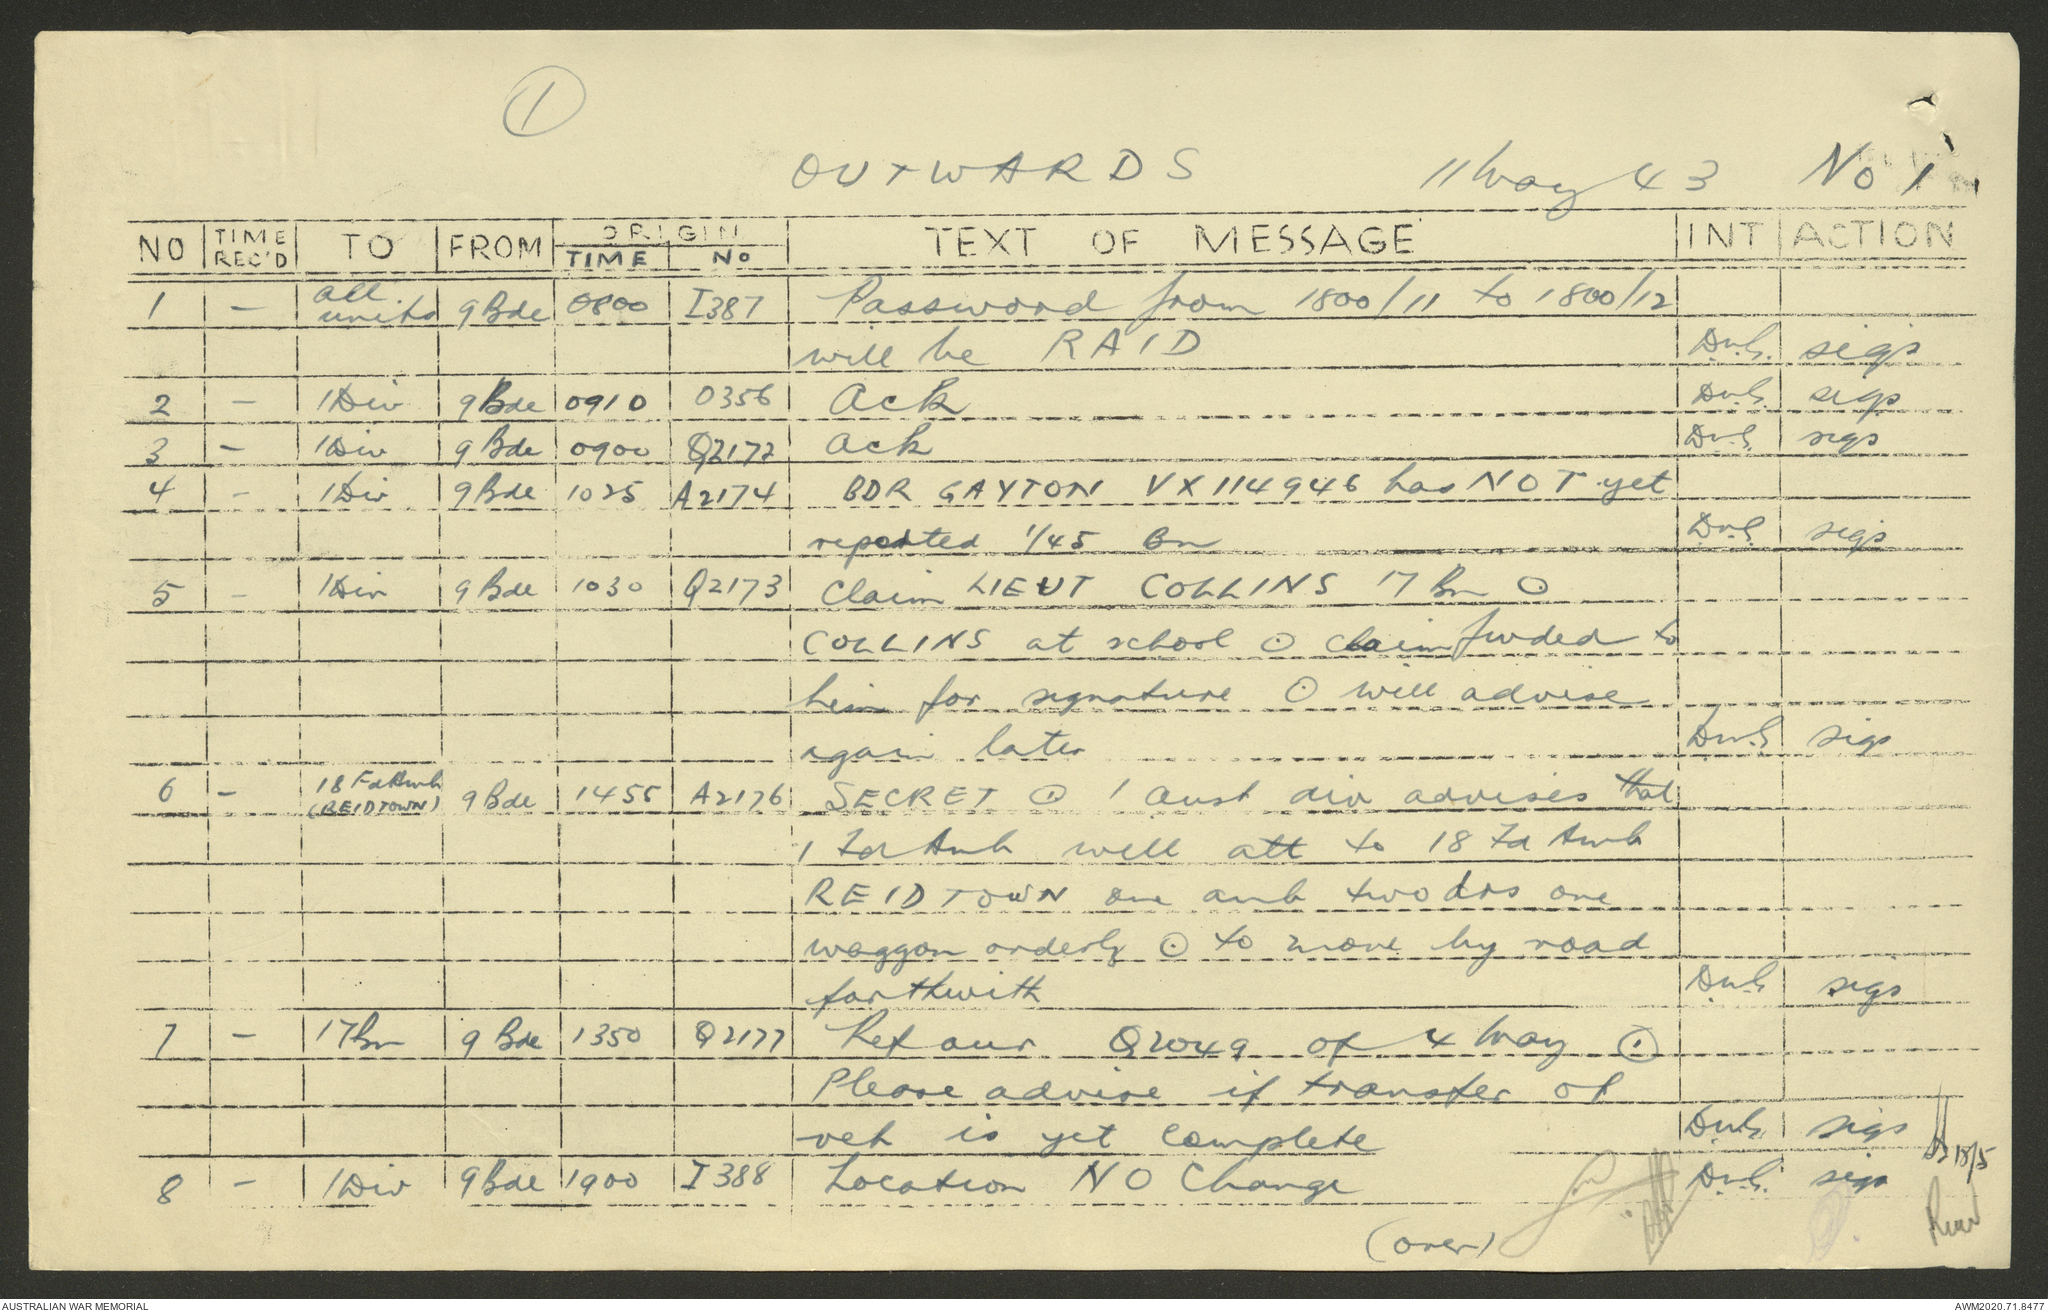 1
OUTWARDS 11 May 43 No 1
NO TIME REC'D TO FROM ORIGIN TIME No TEXT OF MESSAGE INT ACTION
1 - all units 9 Bde 0800 I387 Password from 1800/11 to 1800/12
will be RAID sigs
2 - 1 Div 9 Bde 0910 O356 Ack sigs
3 - 1 Div 9 Bde 0900 Q2172 Ack sigs
4 - 1 Div 9 Bde 1025 A2174 BDR GAYTON VX114946 has NOT yet
reported 1/45 Bn sigs
5 - 1 Div 9 Bde 1030 Q2173 Claim LIEUT COLLINS 17 Bn ⊙
COLLINS at school ⊙ claim fwded to
him for signature ⊙ will advise
again later sigs
6 - 18 Fd Amb (REIDTOWN) 9 Bde 1455 A2176 SECRET ⊙ 1 Aust div advises that
1 Fd Amb will att to 18 Fd Amb
REIDTOWN one amb two drs one
waggon orderly ⊙ to move by road
forthwith sigs
7 - 17 Bn 9 Bde 1350 Q2177 Ref our Q2049 of 4 May ⊙
Please advise if transfer of
veh is yet complete sigs
8 - 1 Div 9 Bde 1900 I388 Location NO Change sigs
18/5
(over)
AUSTRALIAN WAR MEMORIAL AWM2020.71.8477